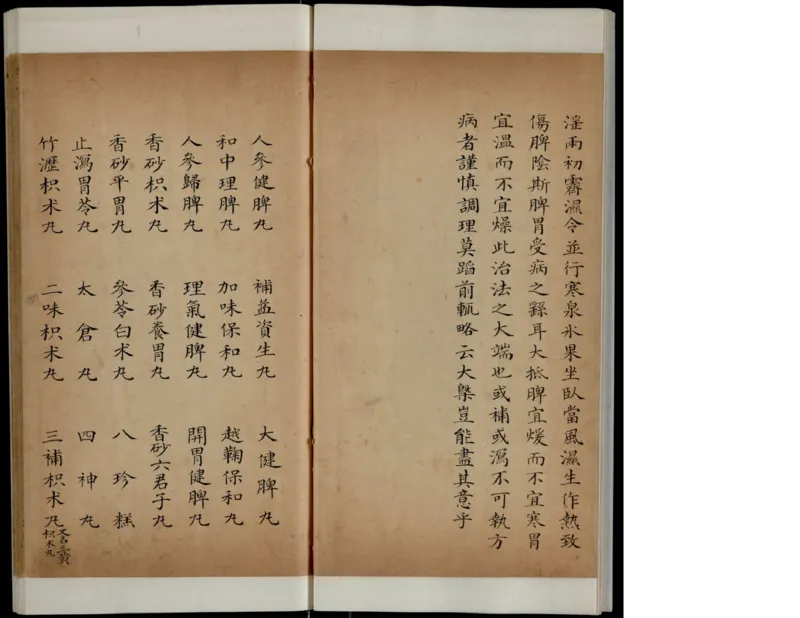 淫雨初霽濕令並行寒泉氷果坐臥當風濕生作熱致
傷脾陰斯脾胃受病之繇耳大抵脾宜煖而不宜寒胃
宜溫而不宜燥此治法之大端也或補或瀉不可執方
病者謹慎調理莫蹈前軌略云大槩豈能盡其意乎
人參健脾丸 補益資生丸 大健脾丸
和中理脾丸 加味保和丸 越鞠保和丸
人參歸脾丸 理氣健脾丸 開胃健脾丸
香砂枳术丸 香砂養胃丸 香砂六君子丸
香砂平胃丸 參苓白术丸 八珍糕
止瀉胃苓丸 太倉丸 四神丸
竹瀝枳术丸 二味枳术丸 三補枳术丸 又名三黃
枳术丸